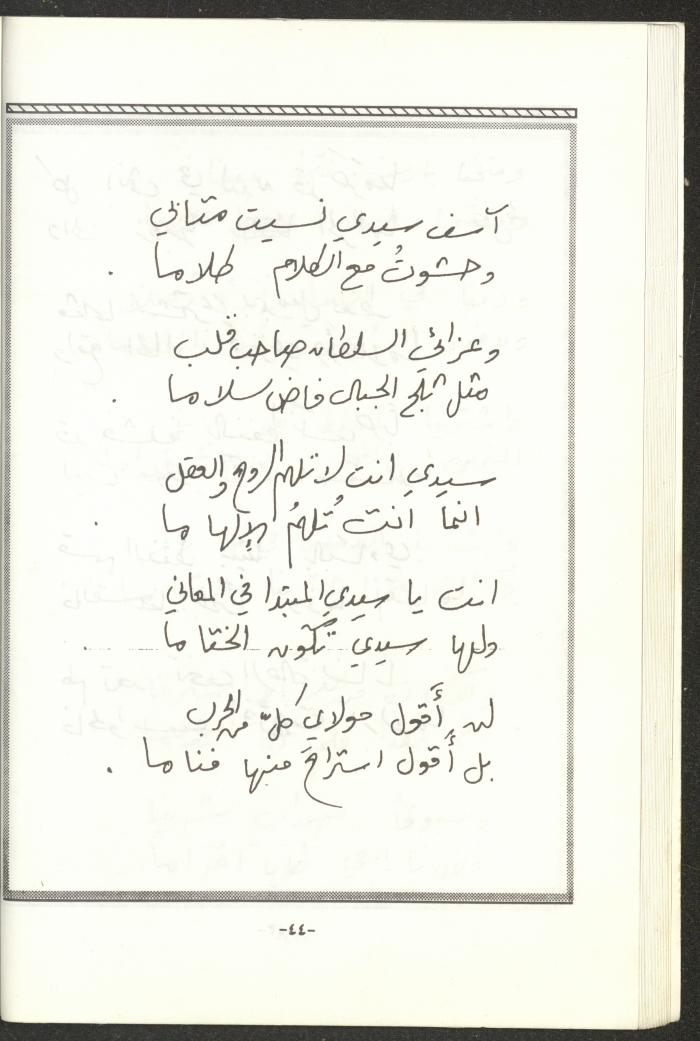 آسف سيدي نسيت مقالي
وحشوتُ مع الكلام كلاما .
وعزائي السلطان صاحب قلب
مثل ثلج الجبال فاض سلاما .
سيدي انت لا تلهم الروح والعقل
انما انت تُلهمُ الإلهاما .
انت يا سيدي المبتدا في المعاني
ولها سيدي تكون الختاما .
لن أَقول مولاي كلّ من الحرب
بل أَقول استراح منها فناما .
-٤٤-